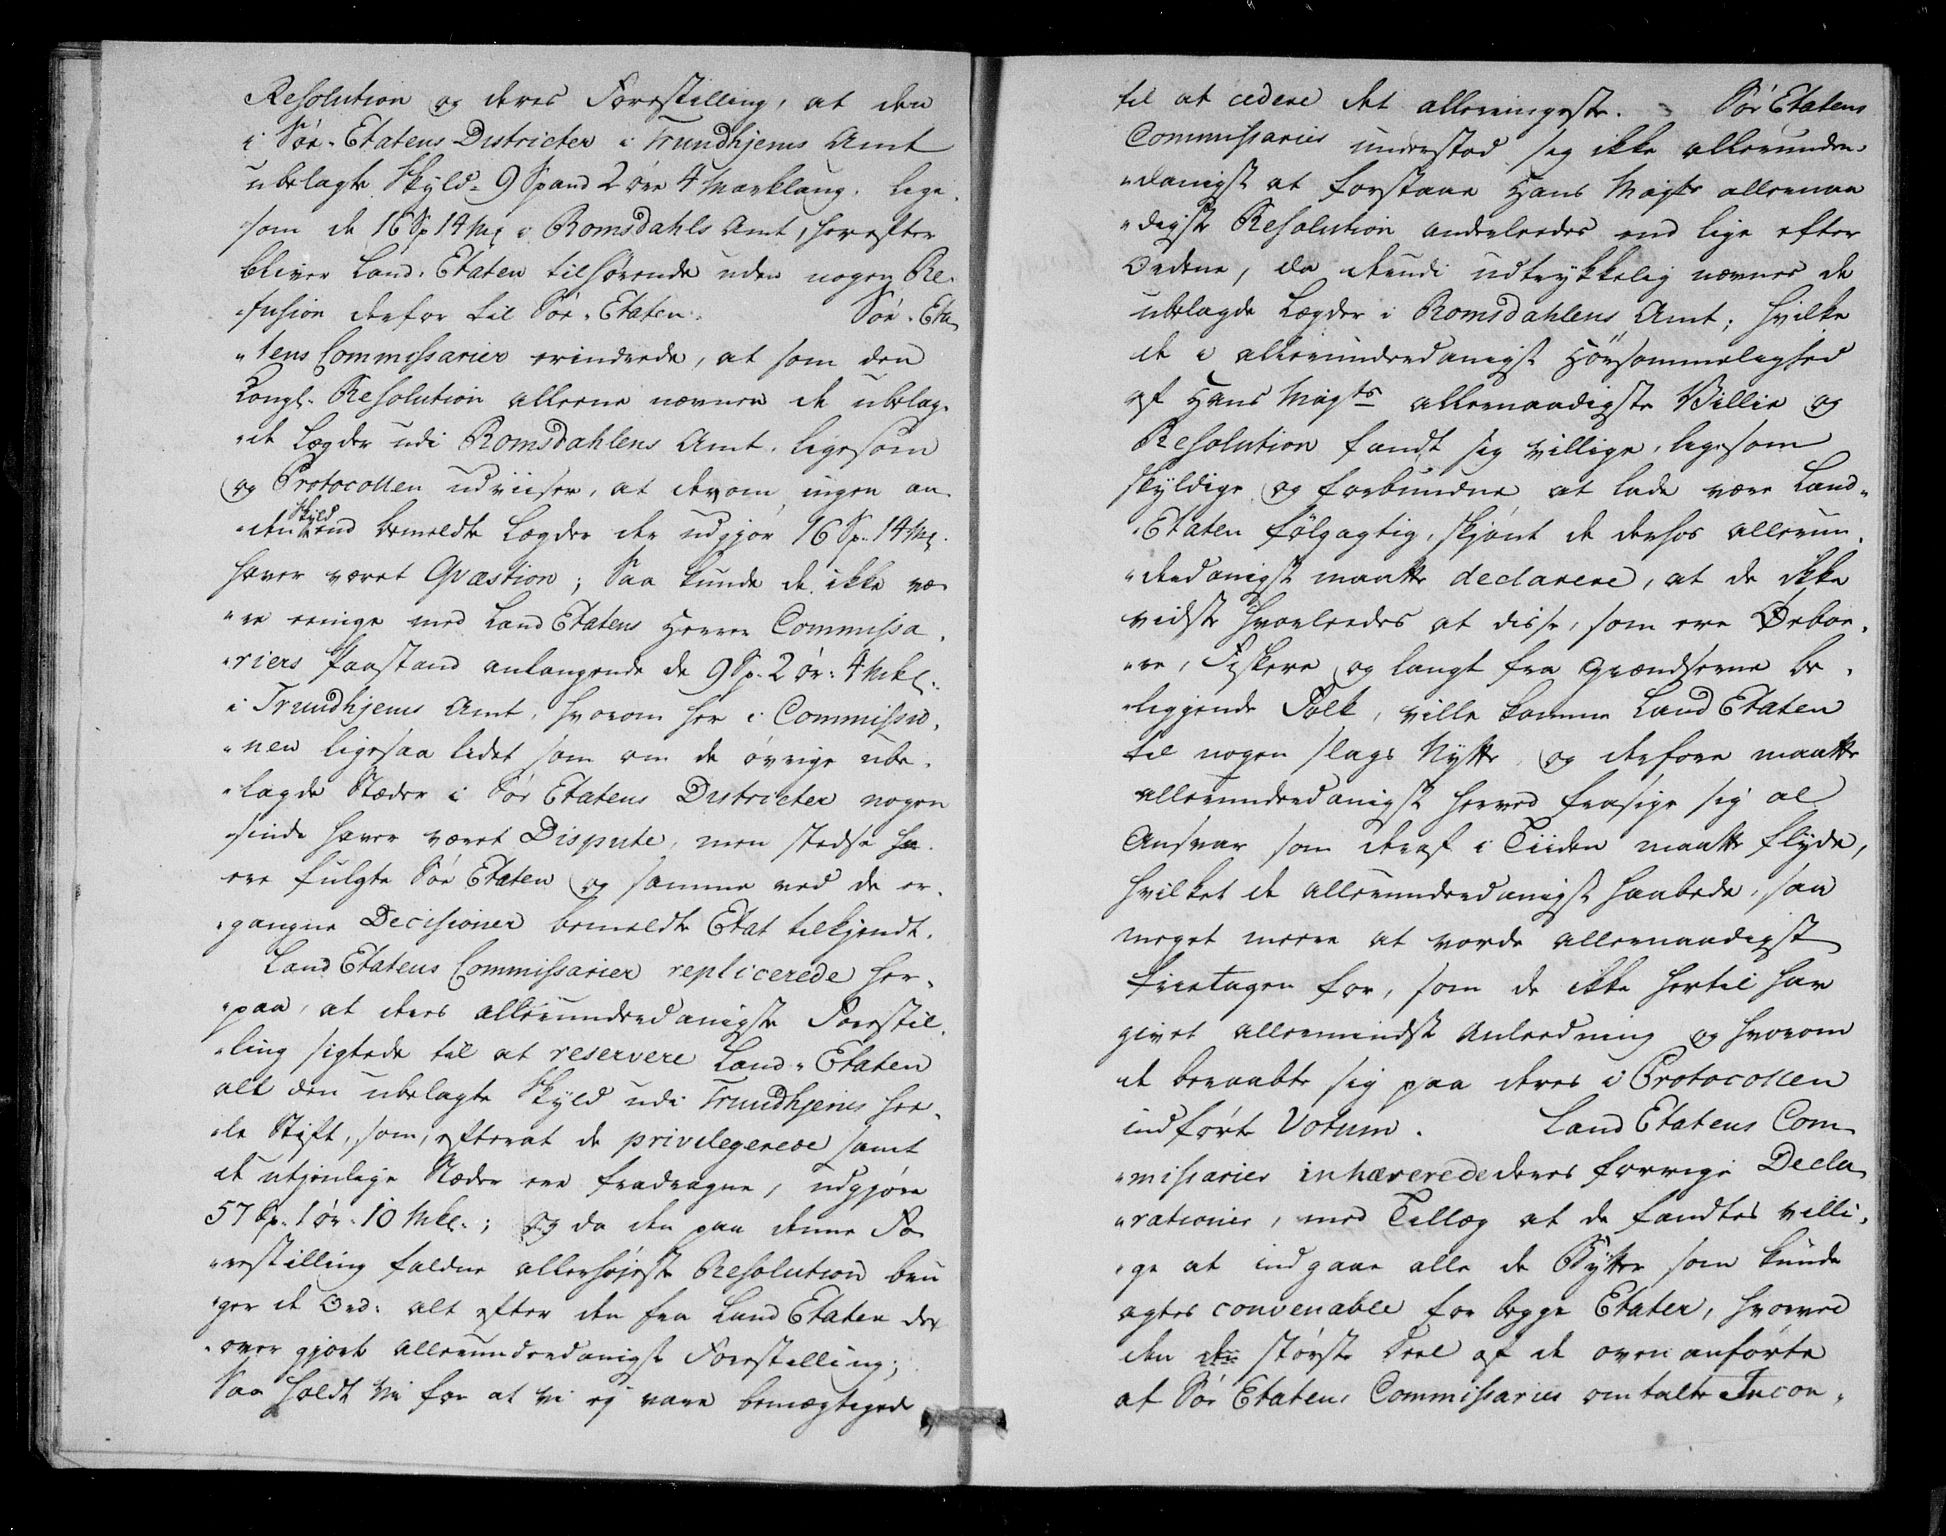 Resolution og deres Forestilling, at den
i Söe-Etatens Districter i Trundhjems Amt
ubelagte Skyld 9 Spand 2 öre 4 Marklaug. lige„
som de 16 Sp 14 Mk i Romsdahls Amt, herefter
bliver Land-Etaten tilhörende uden nogen Re„
„fusion derfor til Söe-Etaten. Söe-Eta„
„tens Commissarier erindrede, at som den
Kongl. Resolution alleene nævner de ubelag„
„de Lægder udi Romsdahlens Amt, ligesom
og Protocollen udviiser, at derom ingen an„
„den Skyld end bemeldte Lægder der udgjör 16 Sp. 14 Mk.
haver været Qvæstion; Saa kunde de ikke væ„
„re eenige med Land Etatens Herrer Commissa„
„riers Paastand anlangende de 9 Sp. 2 ör: 4 Mkl.
i Trundhjems Amt, hvorom her i Commissio„
„nen ligesaa lidet som om de övrige ube„
„lagde Stæder i Söe Etatens Districter nogen
„sinde haver været Dispute, men stedse ha„
ere fulgte Söe Etaten og samme ved de er„
„gangne Decisioner bemeldte Etat tilkjendt.
Land Etatens Commissarier replicerede her„
„paa, at deres allerunderdanigste Forestil„
„ling sigtede til at reservere Land-Etaten
alt den ubelagte Skyld udi Trundhjems hee„
„le Stift, som, efterat de privilegerede samt
de utjenlige Stæder ere fradragne, udgjöre
57 Sp. 1 ör. 10 Mkl.; og da den paa denne Fo„
„restilling faldne allerhöjeste Resolution bru„
„ger de Ord: alt efter den fra Land Etaten der„
„over gjorte allerunderdanigste Forestilling;
Saa holdt Vi for at vi ej vare bemægtigede
til at cedere det allerringeste. Söe Etatens
Commissarier understod sig ikke allerunder„
„danigst at forstaae Hans Majts allernaa
„digste Resolution anderledes end lige efter
Ordene, da derudi udtrykkelig nævnes de
ubelagde Lægder i Romsdahlens Amt; hvilke
de i allerunderdanigst Hörsommelighed
af Hans Majts allernaadigste Villie og
Resolution fandt sig villige, ligesom
skyldige og forbundne at lade være Land„
„Etaten fölgagtig, skjönt de derhos allerun„
„derdanigst maatte declarere, at de ikke
vidste hvorledes at disse, som ere Öeboe„
„re, Fiskere og langt fra Grændserne be„
„liggende Folk, ville komme Land Etaten
til nogen slags Nytte, og derfore maatte
allerunderdanigst herved frasige sig al
Ansvar som deraf i Tiiden maatte flyde,
hvilket de allerunderdanigst haabede, saa
meget meere at vorde allernaadigst
fritagen for, som de ikke hertil har
givet allermindste Anledning og hvorom
de beraabte sig paa deres i Protocollen
indförte Votum. Land Etatens Com„
„missarier inhærerede deres forrige Decla„
„rationer, med Tillæg at de fandtes villi„
„ge at indgaae alle de Bytter som kunde
agtes convenable for begge Etater, hvorved
den störste Deel af de oven anförte
af Söe Etatens Commissarier omtalte Incon„